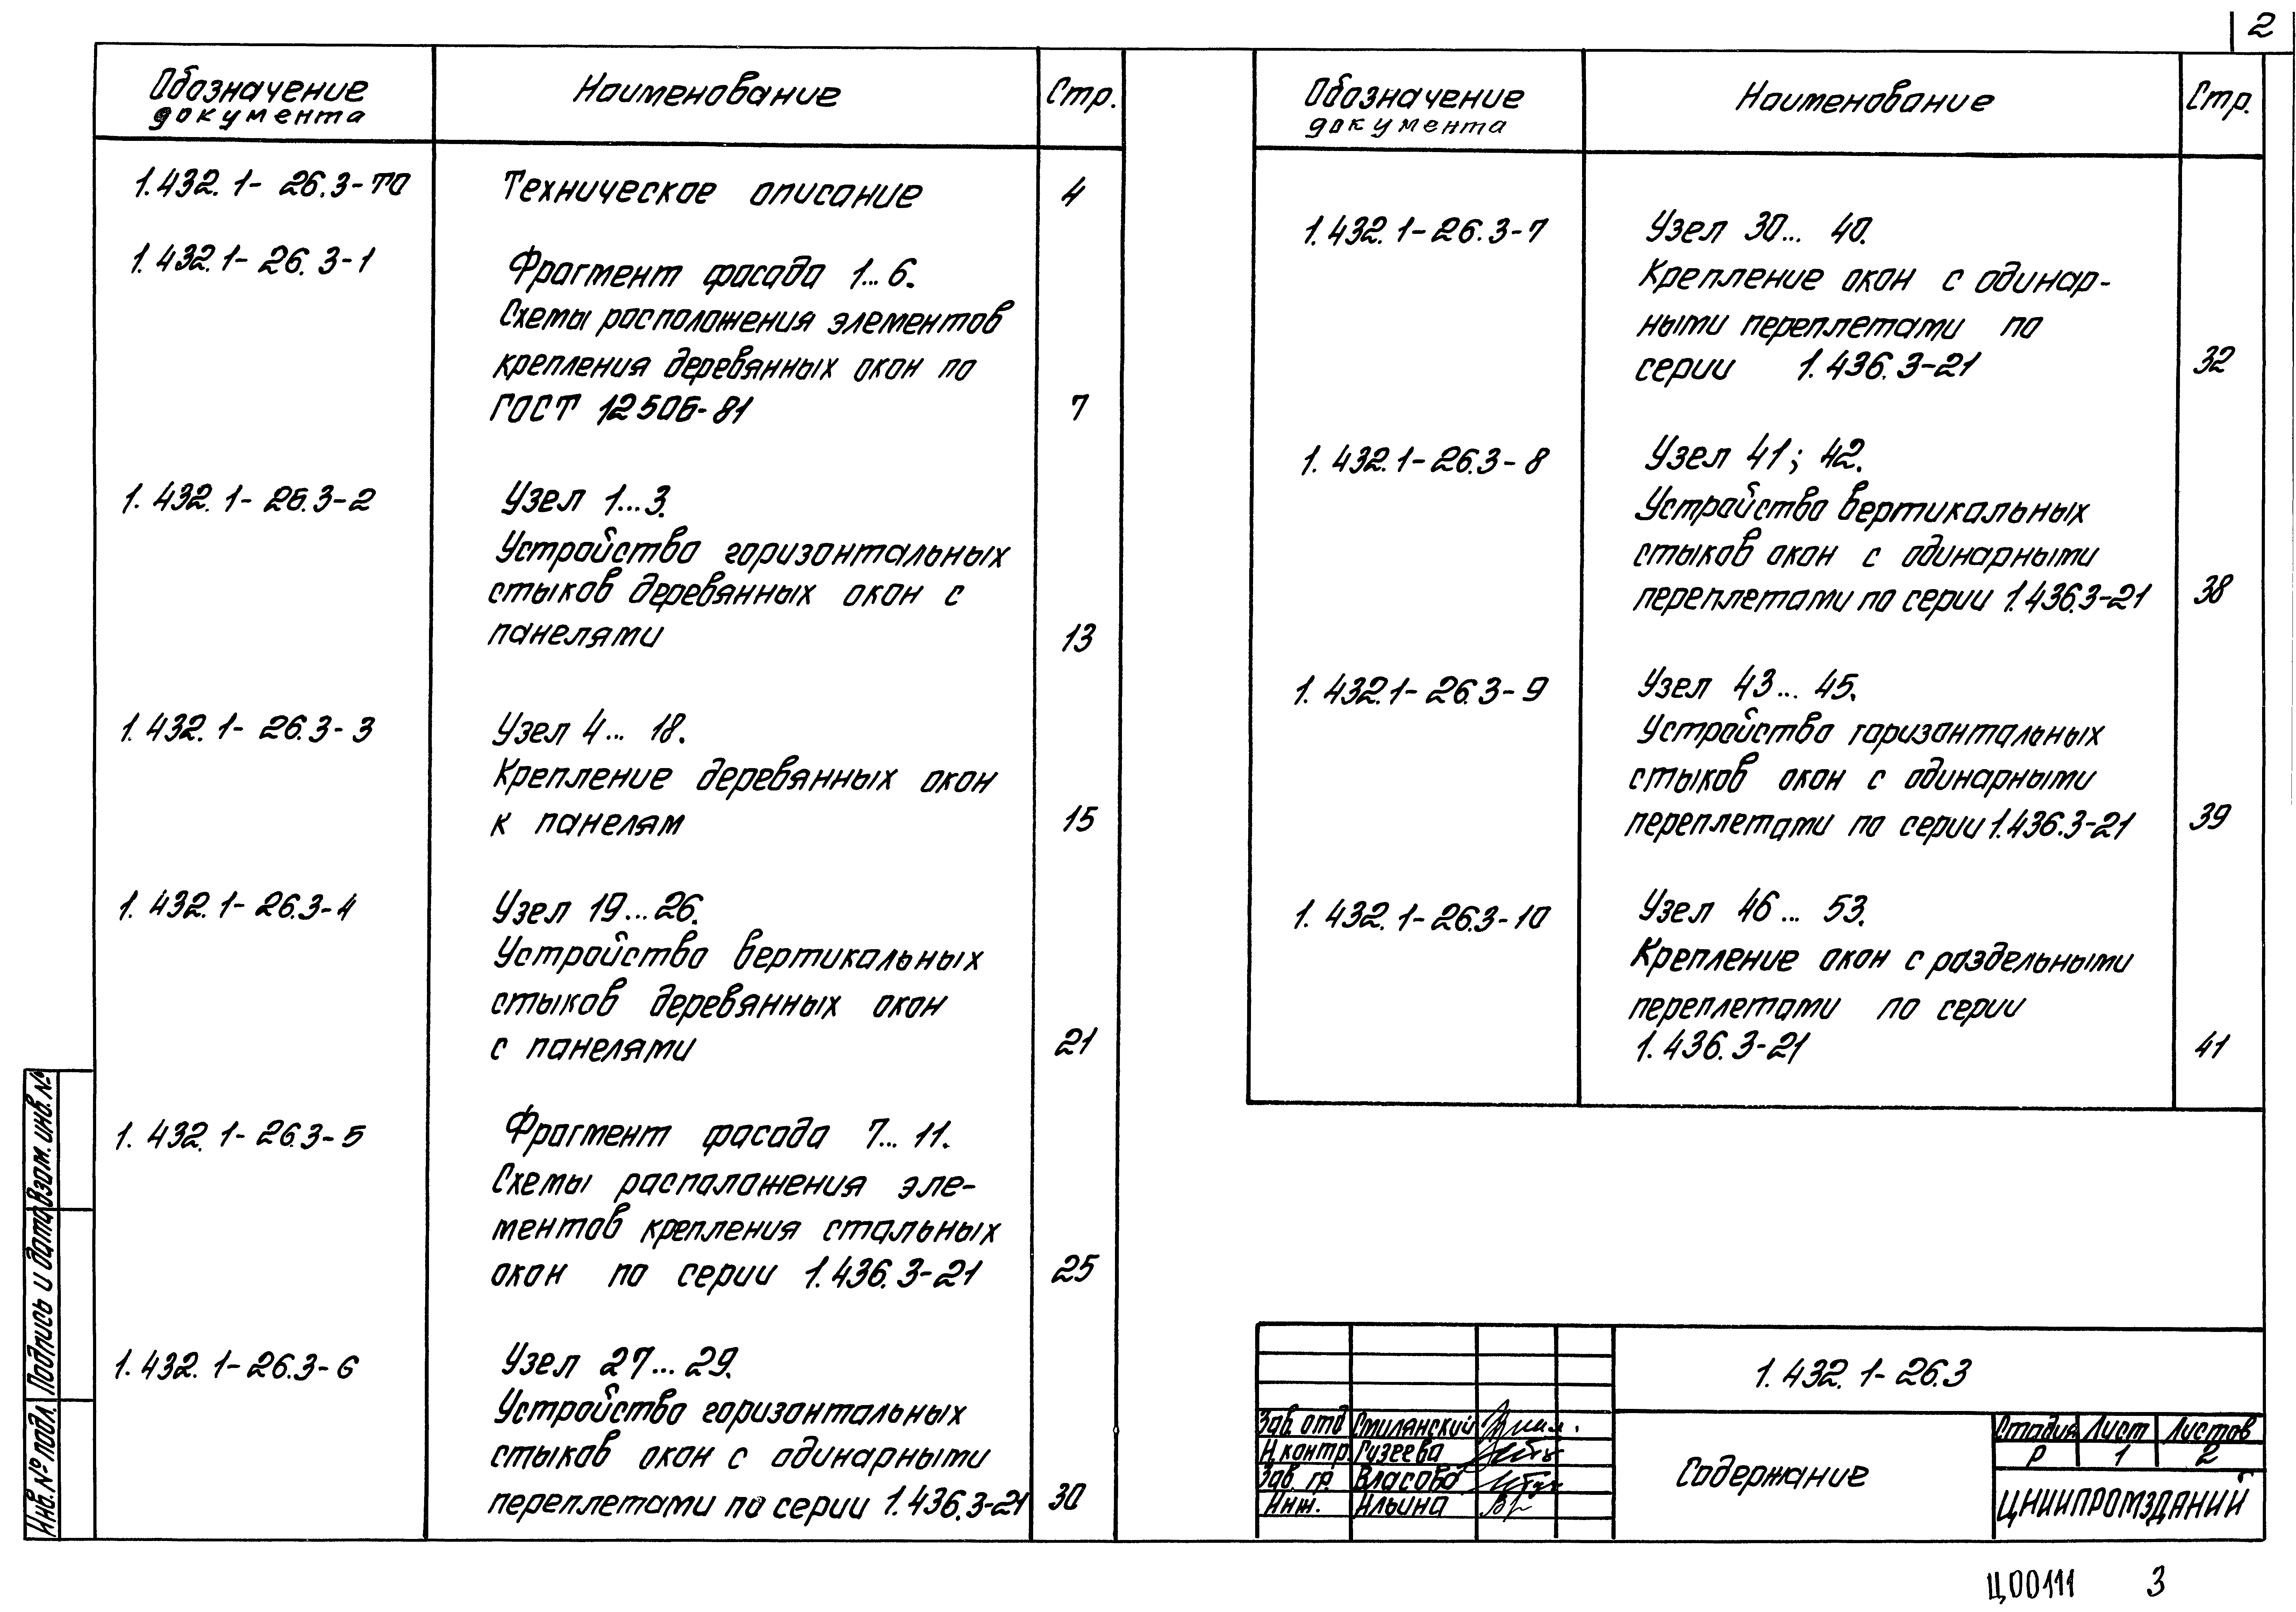 2
Обозначение документа Наименование Стр.
1.432.1-26.3-ТО Техническое описание 4
1.432.1-26.3-1 Фрагмент фасада 1...6.
Схемы расположения элементов
крепления деревянных окон по
ГОСТ 12506-81 7
1.432.1-26.3-2 Узел 1...3.
Устройство горизонтальных
стыков деревянных окон с
панелями 13
1.432.1-26.3-3 Узел 4...18.
Крепление деревянных окон
к панелям 15
1.432.1-26.3-4 Узел 19...26.
Устройство вертикальных
стыков деревянных окон
с панелями 21
1.432.1-26.3-5 Фрагмент фасада 7...11.
Схемы расположения эле-
ментов крепления стальных
окон по серии 1.436.3-21 25
1.432.1-26.3-6 Узел 27...29.
Устройство горизонтальных
стыков окон с одинарными
переплетами по серии 1.436.3-21 30
Обозначение документа Наименование Стр.
1.432.1-26.3-7 Узел 30...40.
Крепление окон с одинар-
ными переплетами по
серии 1.436.3-21 32
1.432.1-26.3-8 Узел 41; 42.
Устройство вертикальных
стыков окон с одинарными
переплетами по серии 1.436.3-21 38
1.432.1-26.3-9 Узел 43...45.
Устройство горизонтальных
стыков окон с одинарными
переплетами по серии 1.436.3-21 39
1.432.1-26.3-10 Узел 46...53.
Крепление окон с раздельными
переплетами по серии
1.436.3-21 41
Инв. № подл. Подпись и дата Взам. инв. №
1.432.1-26.3
Зав. отд Смилянский
Н. контр Гузеева
Зав. гр. Власова
Инж. Ильина
Содержание
Стадия Лист Листов
Р 1 2
ЦНИИПРОМЗДАНИЙ
Ц00111 3